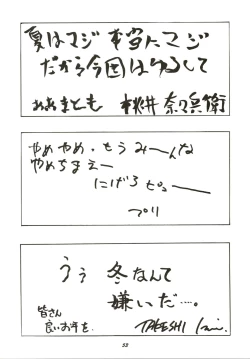 夏はマジ本当にマジ
だから今回はゆるして
桃井 奈々兵衛
やめやめ・もうみーんな
やめちまえー
にげろピューー
プリ
うぅ 冬なんて
嫌いだ…。
皆さん
良いお年を。
TAKESHI
53